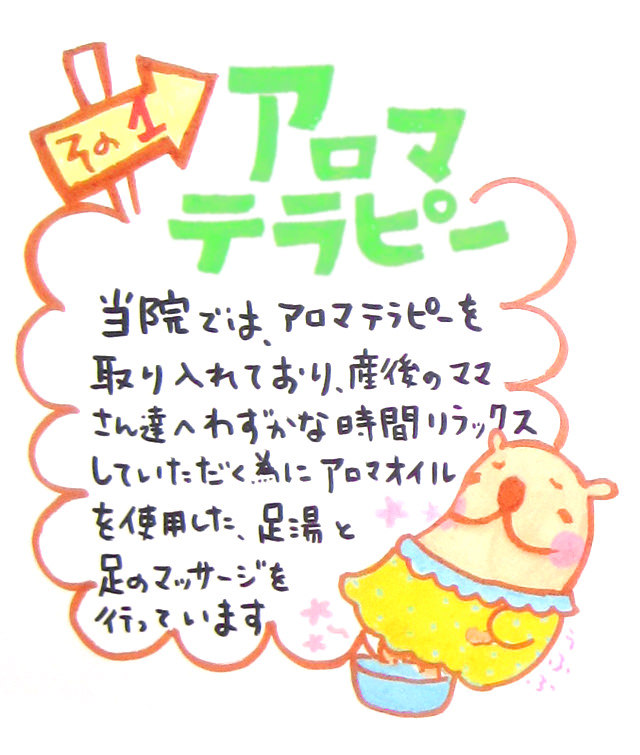 その1
アロマ
テラピー
当院では、アロマテラピーを
取り入れており、産後のママ
さん達へわずかな時間リラックス
していただく為にアロマオイル
を使用した、足湯と
足のマッサージを
行っています
うふふ